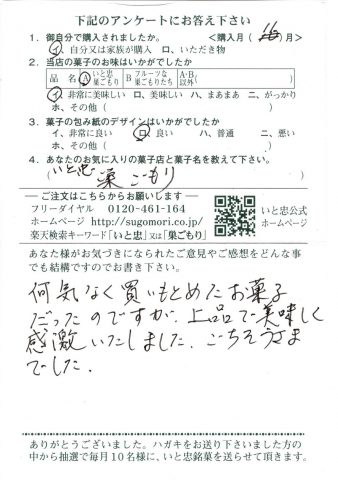 下記のアンケートにお答え下さい
1. 御自分で購入されましたか。 <購入月( 16 )月>
イ、自分又は家族が購入 ロ、いただき物
2. 当店の菓子のお味はいかがでしたか
品名 A いと忠巣ごもり B フルーツな巣ごもりたち A・B以外( )
イ、非常に美味しい ロ、美味しい ハ、まあまあ ニ、がっかり
ホ、その他( )
3. 菓子の包み紙のデザインはいかがでしたか
イ、非常に良い ロ、良い ハ、普通 ニ、悪い
ホ、その他( )
4. あなたのお気に入りの菓子店と菓子名を教えて下さい。
(いと忠 巣ごもり )
ご注文はこちらからお願いします
フリーダイヤル 0120-461-164
ホームページ http://sugomori.co.jp/
楽天検索キーワード「いと忠」又は「巣ごもり」
いと忠公式
ホームページ
あなた様がお気づきになられたご意見やご感想をどんな事
でも結構ですのでお書き下さい。
何気なく買いもとめたお菓子
だったのですが、上品で美味しく
感激いたしました。ごちそうさま
でした。
ありがとうございました。ハガキをお送り下さいました方の
中から抽選で毎月10名様に、いと忠銘菓を送らせて頂きます。